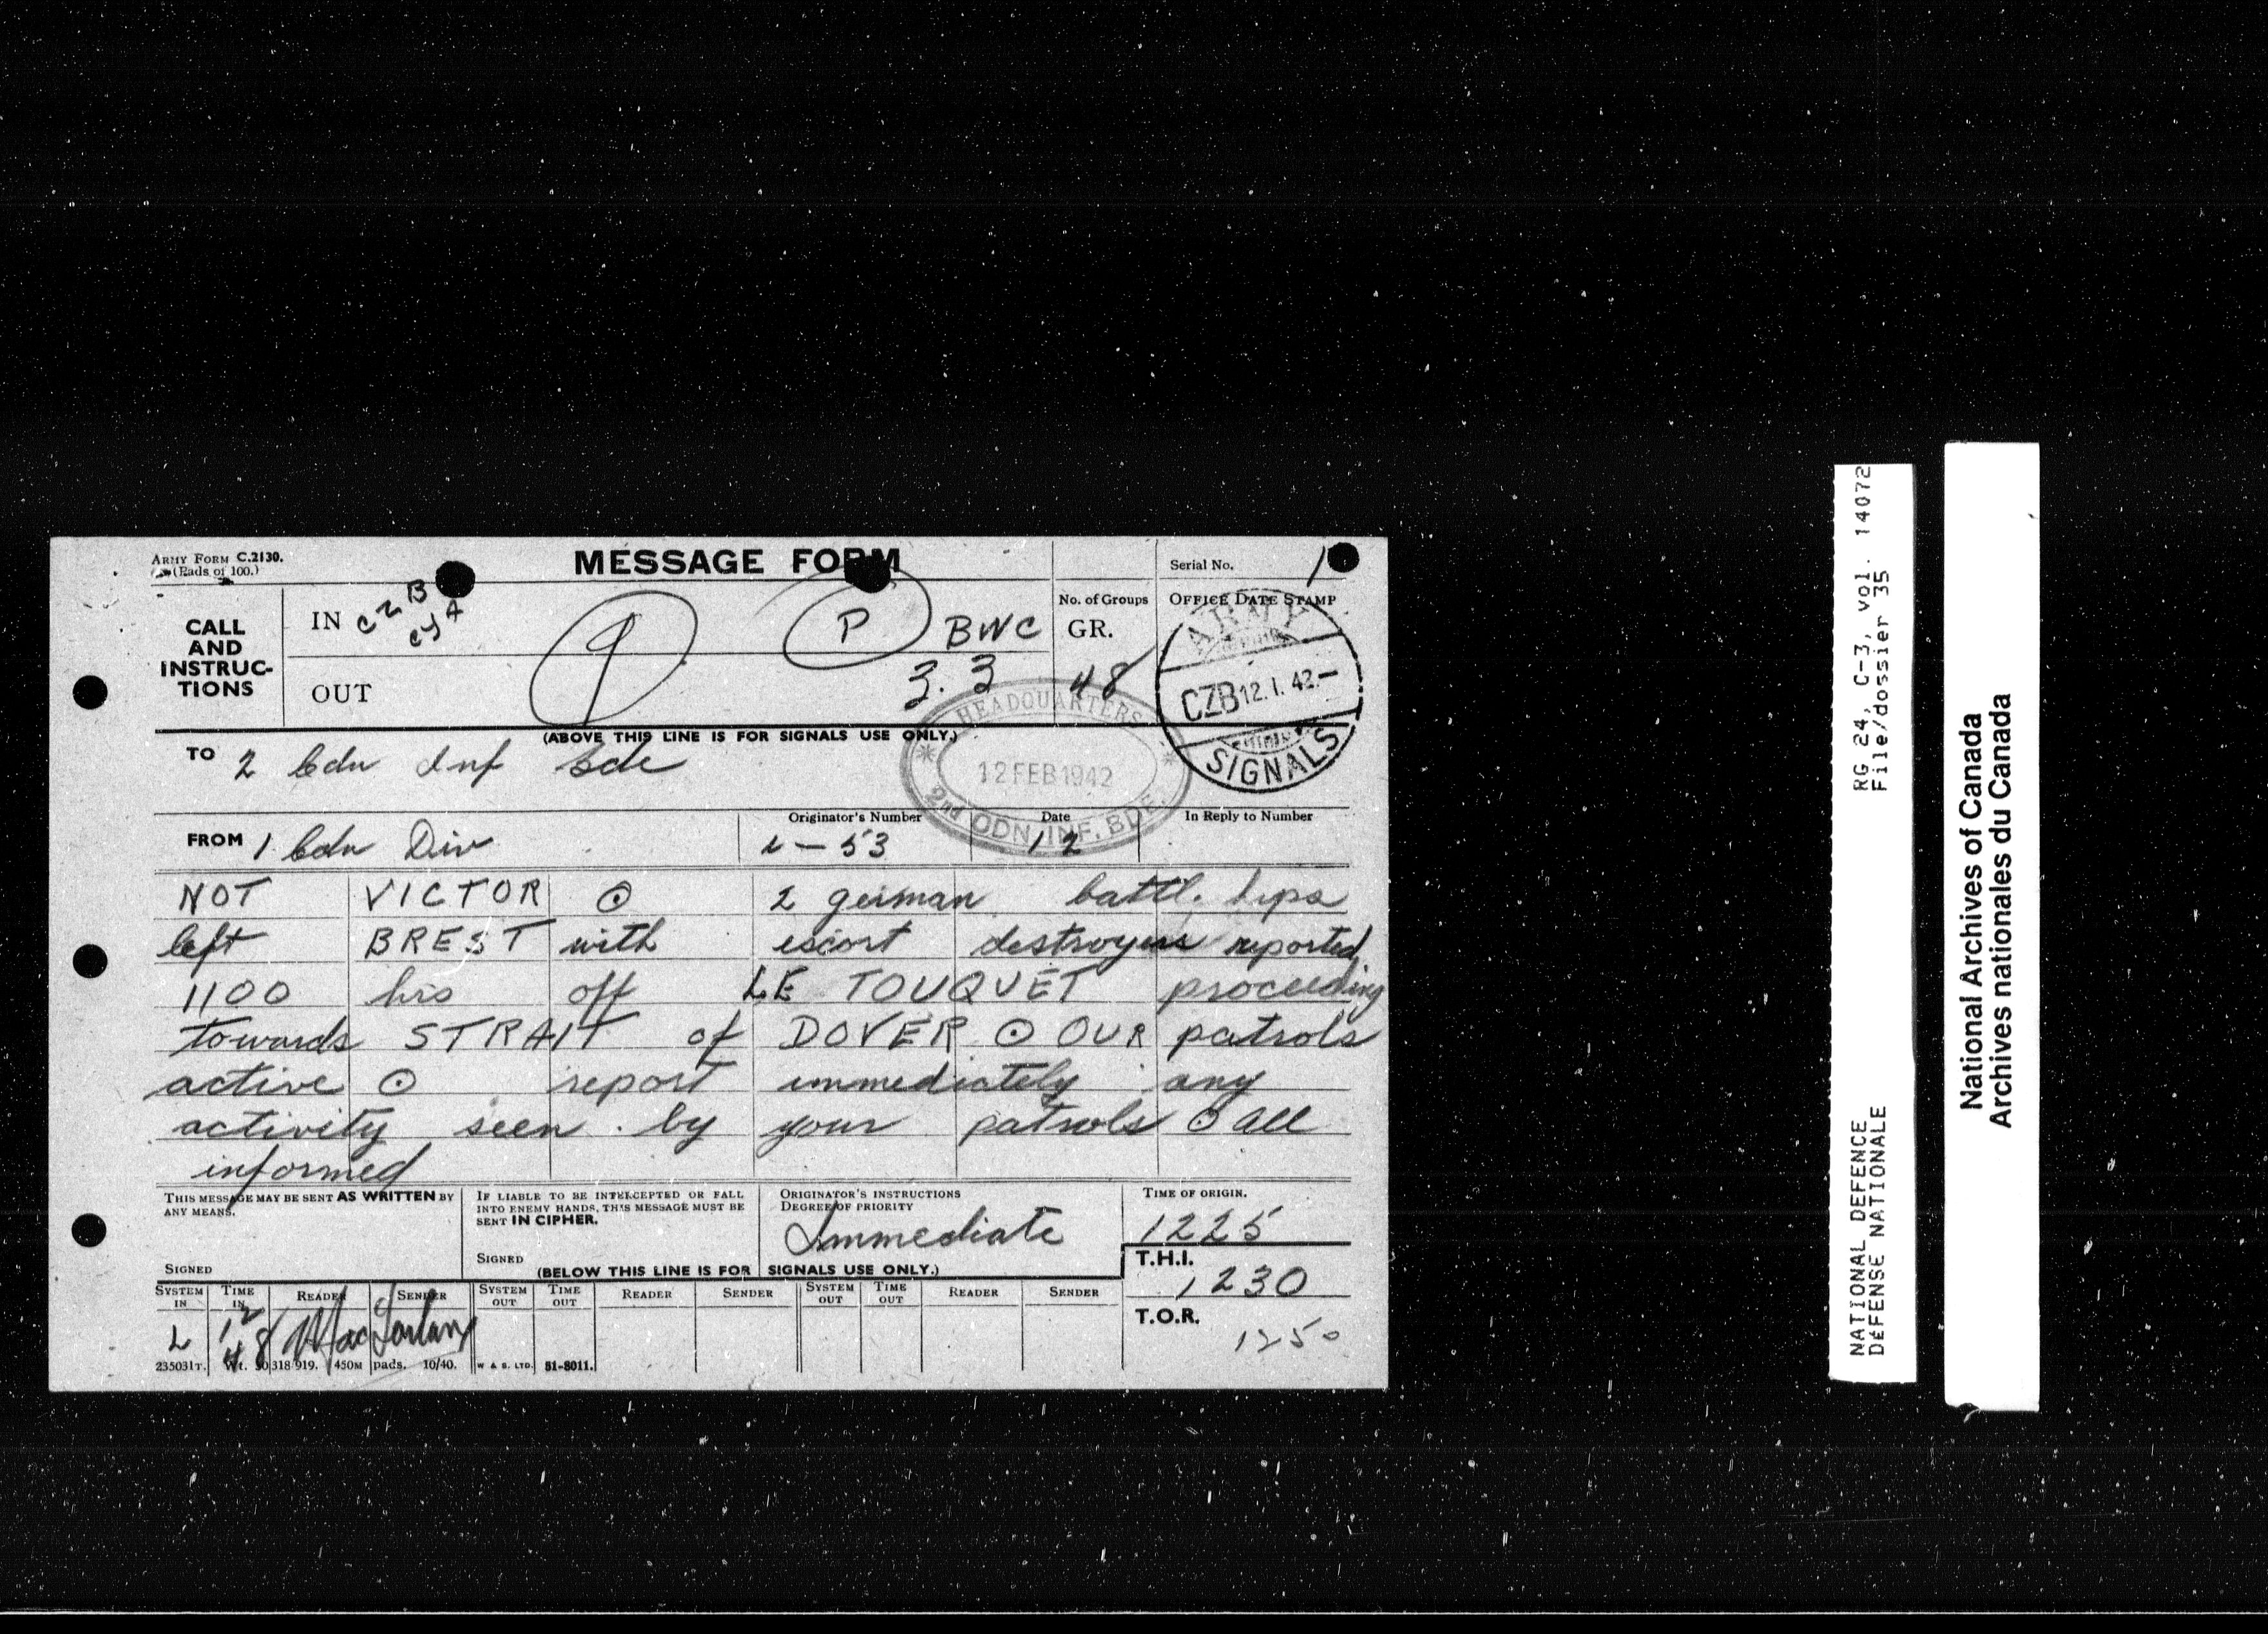 ARMY FORM C.2130.
(Pads of 100.)
MESSAGE FORM
Serial No. 1
CALL AND INSTRUC-TIONS
IN CZB CYA
OUT
9
P
BWC
3.3
No. of Groups
GR.
48
OFFICE DATE STAMP
ARMY
CZB 12.I.42.-
SIGNALS
(ABOVE THIS LINE IS FOR SIGNALS USE ONLY.)
HEADQUARTERS
12 FEB 1942
2nd CDN. INF. BDE.
TO 2 Cdn Inf Bde
FROM 1 Cdn Div
Originator's Number
I-53
Date
12
In Reply to Number
NOT VICTOR ⊙ 2 german
left BREST with escort destroyers reported
1100 hrs off LE TOUQUET proceeding
towards STRAIT of DOVER ⊙ OUR patrols
active ⊙ report immediately any
activity seen by your patrols ⊙ all
informed
THIS MESSAGE MAY BE SENT AS WRITTEN BY ANY MEANS.
SIGNED
IF LIABLE TO BE INTERCEPTED OR FALL INTO ENEMY HANDS, THIS MESSAGE MUST BE SENT IN CIPHER.
SIGNED
ORIGINATOR'S INSTRUCTIONS
DEGREE OF PRIORITY
Immediate
TIME OF ORIGIN.
1225
T.H.I.
1230
T.O.R.
1250
(BELOW THIS LINE IS FOR SIGNALS USE ONLY.)
SYSTEM IN TIME IN READER SENDER SYSTEM OUT TIME OUT READER SENDER SYSTEM OUT TIME OUT READER SENDER
L 1248
235031T. Wt. 30318/919. 450M pads. 10/40. W & S. LTD. 51-8011.
NATIONAL DEFENCE RG 24, C-3, vol. 14072
DÉFENSE NATIONALE File/dossier 35
National Archives of Canada
Archives nationales du Canada